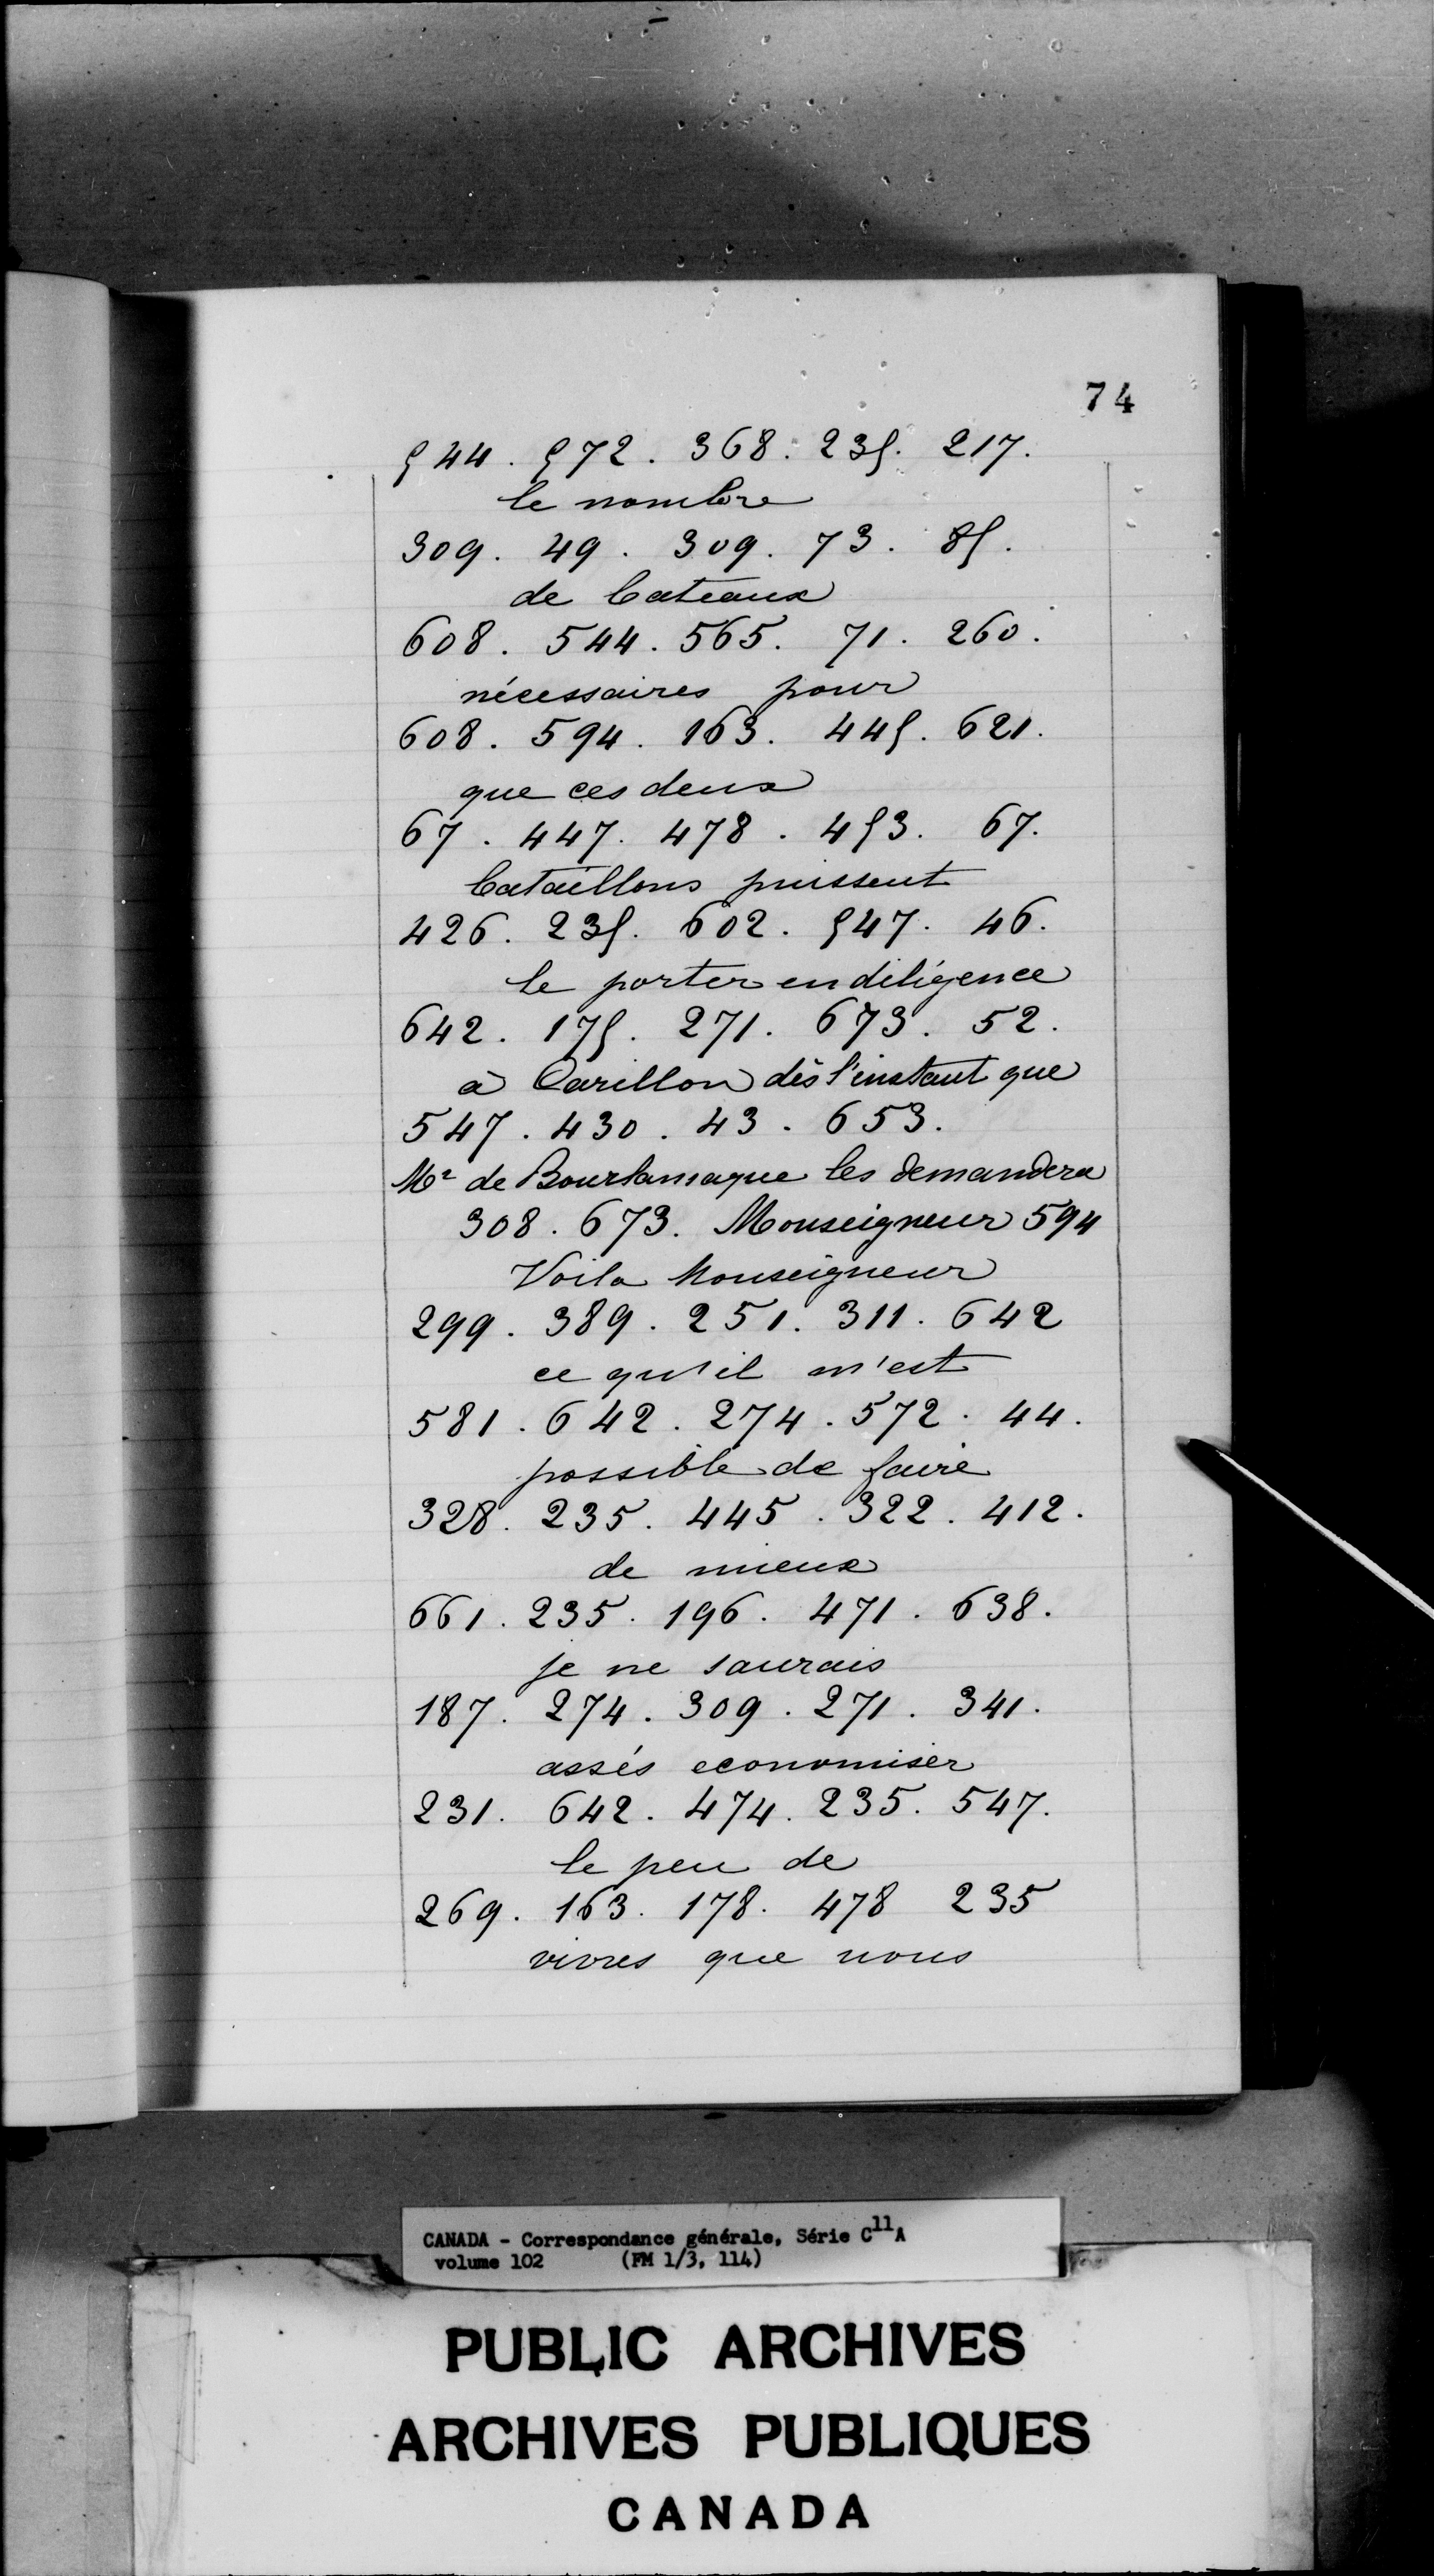 74
544. 572. 368. 235. 217.
le nombre
309. 49. 309. 73. 85.
de bateaux
608. 544. 565. 71. 260.
nécessaires pour
608. 594. 163. 445. 621.
que ces deux
67. 447. 478. 453. 67.
bataillons puissent
426. 235. 602. 547. 46.
le porter en diligence
642. 175. 271. 673. 52.
à Carillon dès l'instant que
547. 430. 43. 653.
Mr de Bourlamaque les demandera
308. 673. Monseigneur 594
Voila Monseigneur
299. 389. 251. 311. 642
ce qu'il m'est
581. 642. 274. 572. 44.
possible de faire
328. 235. 445. 322. 412.
de mieux
661. 235. 196. 471. 638.
je ne saurais
187. 274. 309. 271. 341.
assés economiser
231. 642. 474. 235. 547.
le peu de
269. 163. 178. 478 235
vivres que nous
CANADA - Correspondance générale, Série C11A
volume 102 (FM 1/3, 114)
PUBLIC ARCHIVES
ARCHIVES PUBLIQUES
CANADA